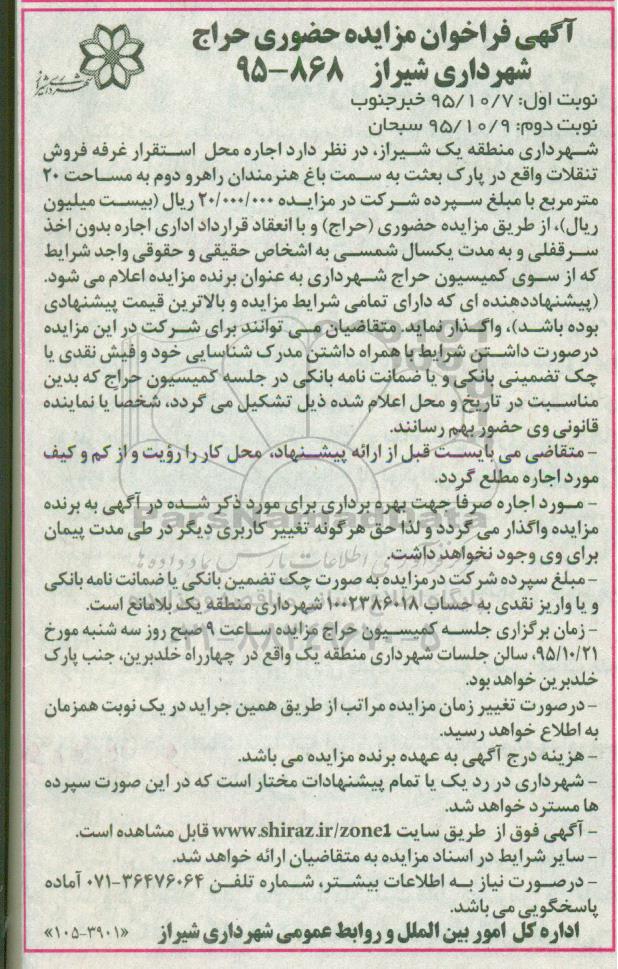 آگهی فراخوان مزایده حضوری حراج
شهرداری شیراز ۸۶۸-۹۵
شهرداری شیراز
نوبت اول: ۹۵/۱۰/۷ خبرجنوب
نوبت دوم: ۹۵/۱۰/۹ سبحان
شهرداری منطقه یک شیراز، در نظر دارد اجاره محل استقرار غرفه فروش
تنقلات واقع در پارک بعثت به سمت باغ هنرمندان راهرو دوم به مساحت ۲۰
مترمربع با مبلغ سپرده شرکت در مزایده ۲۰/۰۰۰/۰۰۰ ریال (بیست میلیون
ریال)، از طریق مزایده حضوری (حراج) و با انعقاد قرارداد اداری اجاره بدون اخذ
سرقفلی و به مدت یکسال شمسی به اشخاص حقیقی و حقوقی واجد شرایط
که از سوی کمیسیون حراج شهرداری به عنوان برنده مزایده اعلام می شود.
(پیشنهاددهنده ای که دارای تمامی شرایط مزایده و بالاترین قیمت پیشنهادی
بوده باشد)، واگذار نماید. متقاضیان می توانند برای شرکت در این مزایده
درصورت داشتن شرایط با همراه داشتن مدرک شناسایی خود و فیش نقدی یا
چک تضمینی بانکی و یا ضمانت نامه بانکی در جلسه کمیسیون حراج که بدین
مناسبت در تاریخ و محل اعلام شده ذیل تشکیل می گردد، شخصاً یا نماینده
قانونی وی حضور بهم رسانند.
- متقاضی می بایست قبل از ارائه پیشنهاد، محل کار را رؤیت و از کم و کیف
مورد اجاره مطلع گردد.
- مورد اجاره صرفا جهت بهره برداری برای مورد ذکر شده در آگهی به برنده
مزایده واگذار می گردد و لذا حق هرگونه تغییر کاربری دیگر در طی مدت پیمان
برای وی وجود نخواهد داشت.
- مبلغ سپرده شرکت در مزایده به صورت چک تضمین بانکی یا ضمانت نامه بانکی
و یا واریز نقدی به حساب ۱۰۰۲۳۸۶۰۱۸ شهرداری منطقه یک بلامانع است.
- زمان برگزاری جلسه کمیسیون حراج مزایده ساعت ۹ صبح روز سه شنبه مورخ
۹۵/۱۰/۲۱، سالن جلسات شهرداری منطقه یک واقع در چهارراه خلدبرین، جنب پارک
خلدبرین خواهد بود.
- درصورت تغییر زمان مزایده مراتب از طریق همین جراید در یک نوبت همزمان
به اطلاع خواهد رسید.
- هزینه درج آگهی به عهده برنده مزایده می باشد.
- شهرداری در رد یک یا تمام پیشنهادات مختار است که در این صورت سپرده
ها مسترد خواهد شد.
- آگهی فوق از طریق سایت www.shiraz.ir/zone1 قابل مشاهده است.
- سایر شرایط در اسناد مزایده به متقاضیان ارائه خواهد شد.
- درصورت نیاز به اطلاعات بیشتر، شماره تلفن ۳۶۴۷۶۰۶۴-۰۷۱ آماده
پاسخگویی می باشد.
اداره کل امور بین الملل و روابط عمومی شهرداری شیراز «۱۰۵-۳۹۰۱»